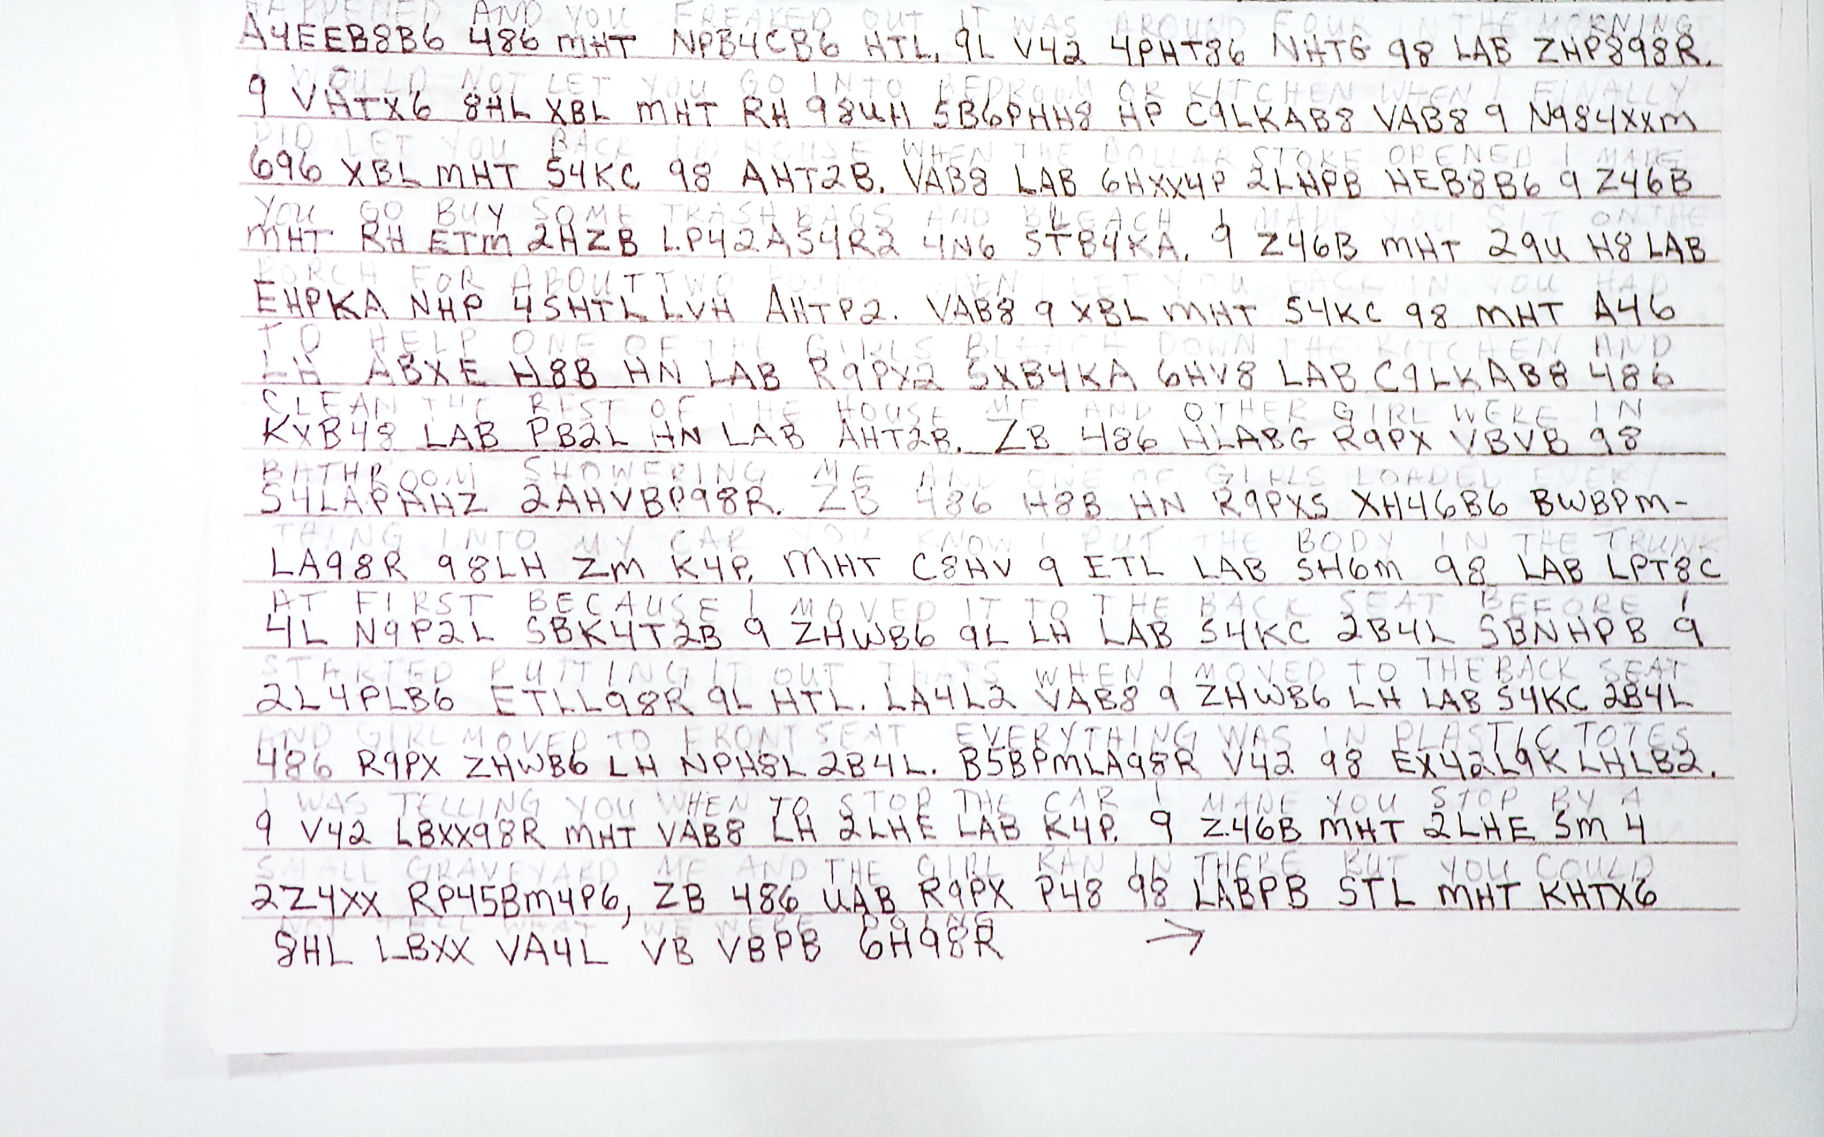 HAPPENED AND YOU FREAKED OUT IT WAS AROUND FOUR IN THE MORNING
A4EEB8B6 486 MHT NPB4CB6 HTL, 9L V42 4PHT86 NHTG 98 LAB ZHP898R.
I WOULD NOT LET YOU GO INTO BEDROOM OR KITCHEN WHEN I FINALLY
9 VHTX6 8HL XBL MHT RH 98UH 5B6PHH8 HP C9LKAB8 VAB8 9 N984XXM
DID LET YOU BACK IN HOUSE WHEN THE DOLLAR STORE OPENED I MADE
696 XBL MHT S4KC 98 AHT2B. VAB8 LAB 6HXX4P 2LHPB HEB8B6 9 Z46B
YOU GO BUY SOME TRASH BAGS AND BLEACH I MADE YOU SIT ON THE
MHT RH ETM 2HZB LP42AS4R2 4N6 STB4KA. 9 Z46B MHT 29U H8 LAB
PORCH FOR ABOUT TWO WHEN I LET YOU BACK IN YOU HAD
EHPKA NHP 4SHTL LVH AHTP2. VAB8 9 XBL MHT S4KC 98 MHT A46
TO HELP ONE OF THE GIRLS BLEACH DOWN THE KITCHEN AND
LH ABXE H8B HN LAB R9PX2 SXB4KA 6HV8 LAB C9LKAB8 486
CLEAN THE REST OF THE HOUSE ME AND OTHER GIRL WERE IN
KXB48 LAB PB2L HN LAB AHT2B. ZB 486 HLABG R9PX VBVB 98
BATHROOM SHOWERING ME AND ONE OF GIRLS LOADED EVERY
S4LAPHHZ 2AHVBP98R. ZB 486 H8B HN R9PXS XH46B6 BWBPM-
THING INTO MY CAR YOU KNOW I PUT THE BODY IN THE TRUNK
LA98R 98LH ZM K4P. MHT C8HV 9 ETL LAB SH6M 98 LAB LPT8C
AT FIRST BECAUSE I MOVED IT TO THE BACK SEAT BEFORE I
4L N9P2L SBK4T2B 9 ZHWB6 9L LH LAB S4KC 2B4L SBNHPB 9
STARTED PUTTING IT OUT THATS WHEN I MOVED TO THE BACK SEAT
2L4PLB6 ETLL98R 9L HTL. LA4L2 VAB8 9 ZHWB6 LH LAB S4KC 2B4L
AND GIRL MOVED TO FRONT SEAT EVERYTHING WAS IN PLASTIC TOTES
486 R9PX ZHWB6 LH NPH8L 2B4L. B5BPMLA98R V42 98 EX42L9K LHLB2.
I WAS TELLING YOU WHEN TO STOP THE CAR I MADE YOU STOP BY A
9 V42 LBXX98R MHT VAB8 LH 2LHE LAB K4P. 9 Z46B MHT 2LHE SM 4
SMALL GRAVEYARD ME AND THE GIRL RAN IN THERE BUT YOU COULD
2Z4XX RP45BM4P6, ZB 486 UAB R9PX P48 98 LABPB STL MHT KHTX6
NOT TELL WHAT WE WERE DOING
8HL LBXX VA4L VB VBPB 6H98R →